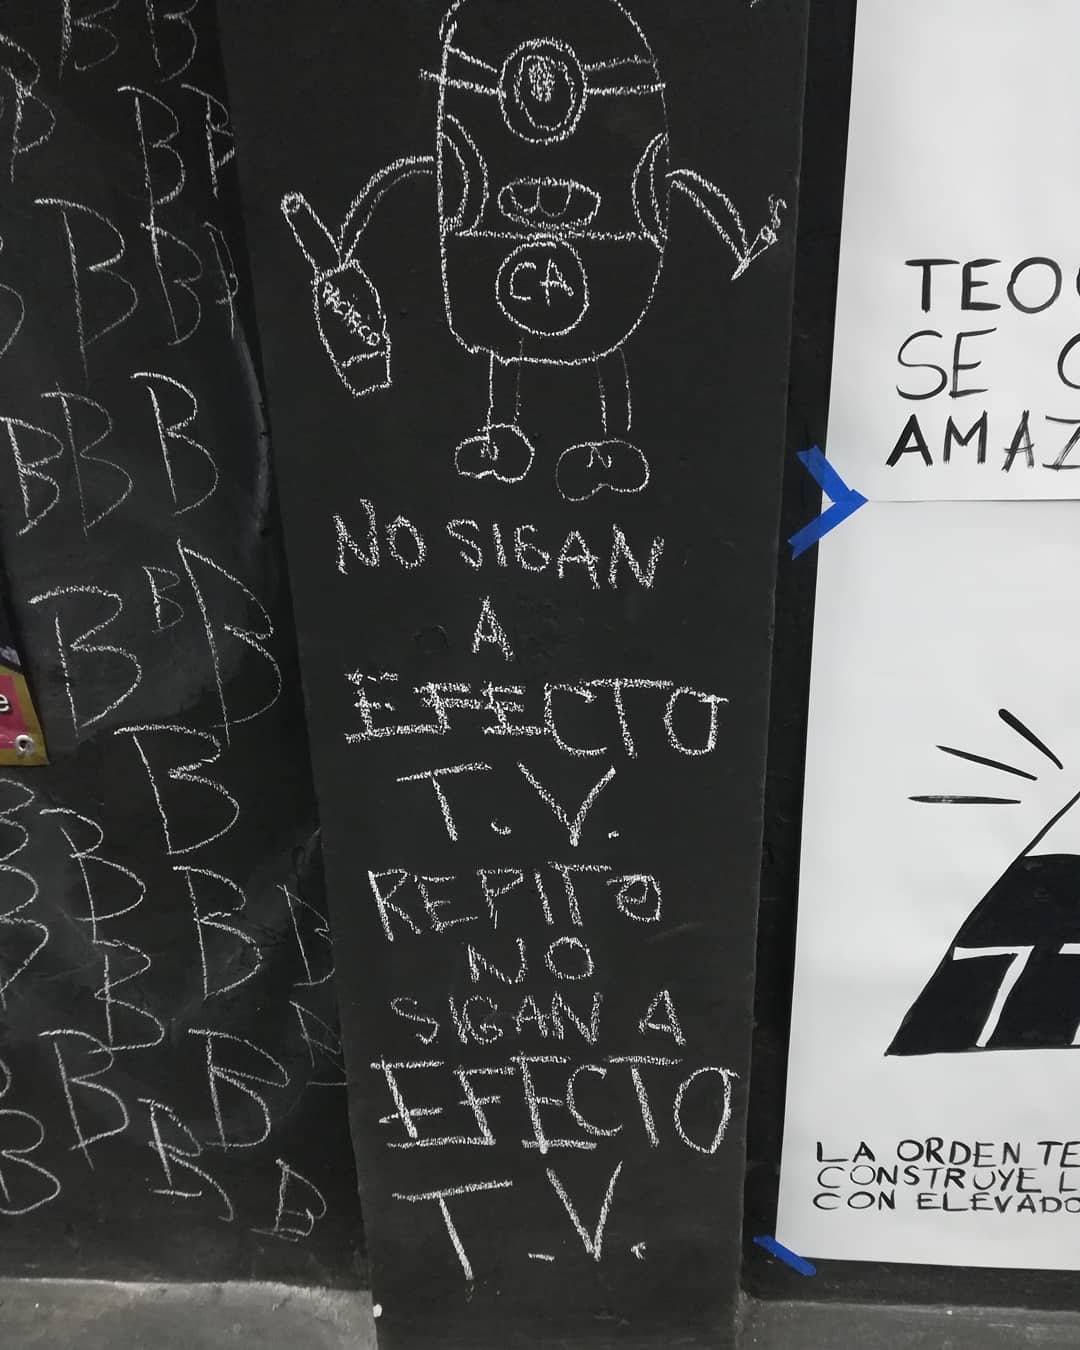 B B
B B
B B
B B
B B B
B B B
B
B B
B B
B B
B B
B B
CA
PACIFICO
NO SIGAN
A
EFECTO
T.V.
REPITO
NO
SIGAN A
EFECTO
T.V.
TEO
SE
AMAZ
LA ORDEN TE
CONSTRUYE L
CON ELEVADO